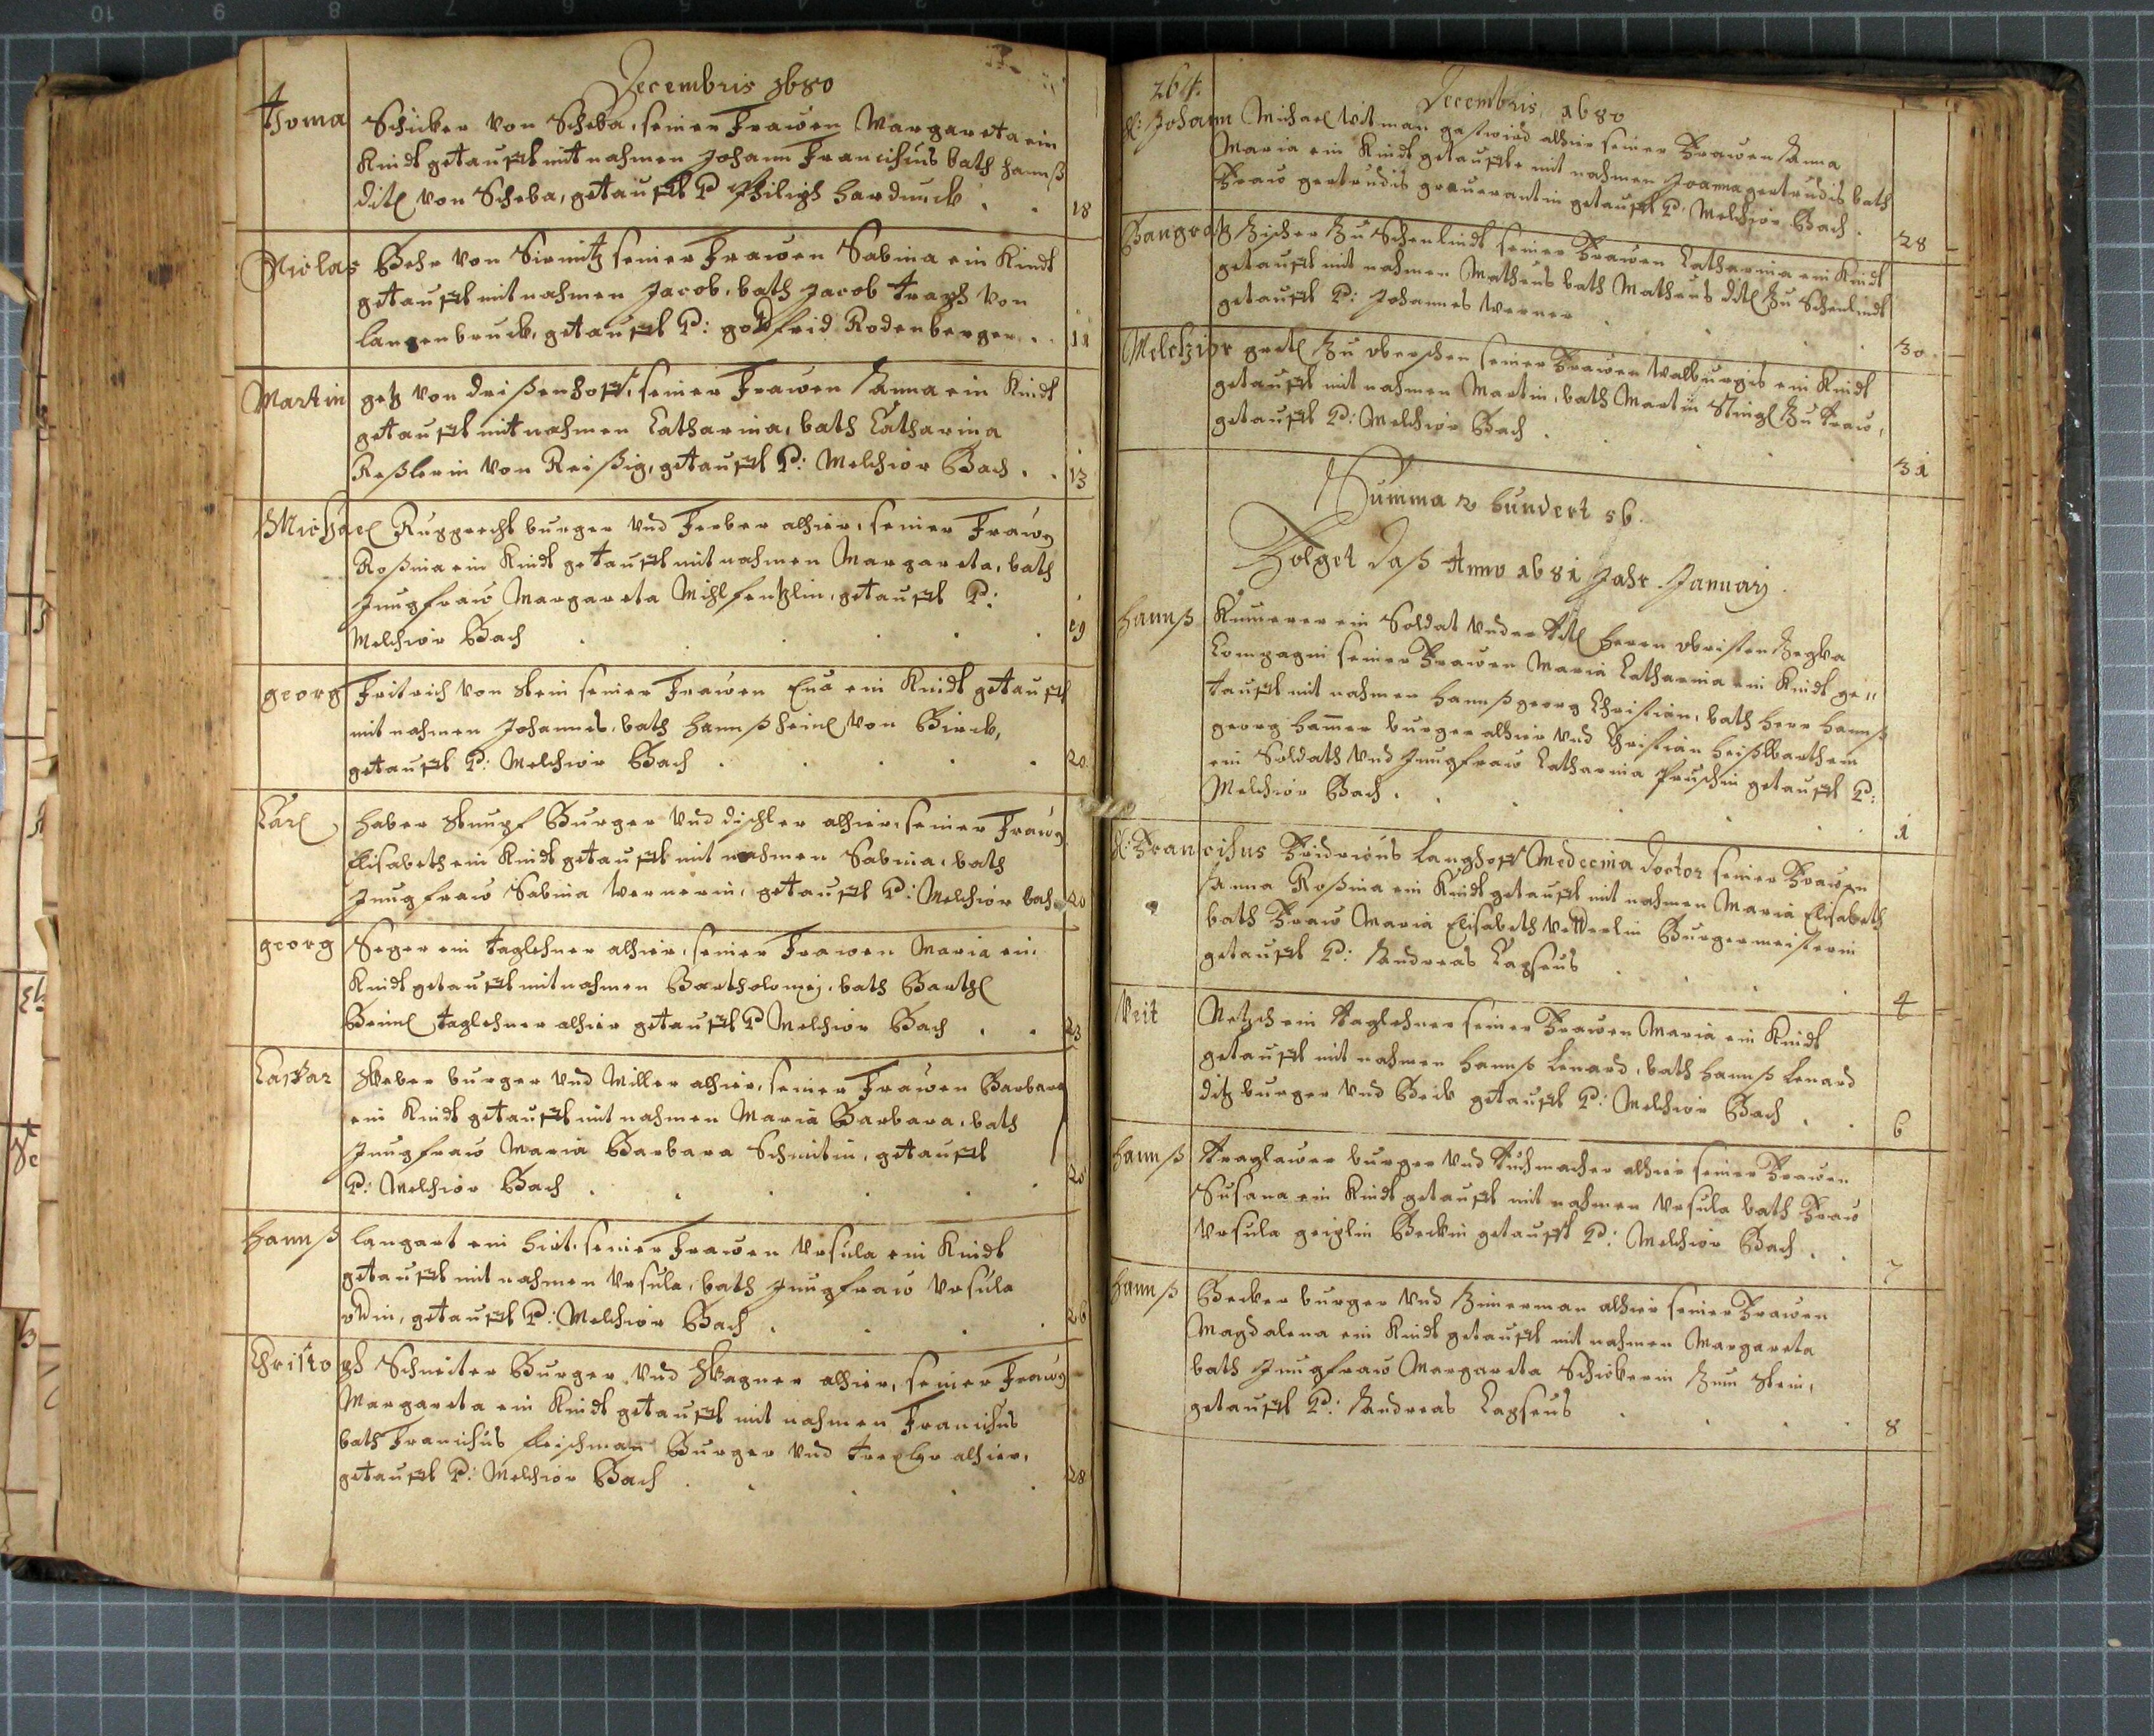 Decembris 1680
Thoma Schicker von Scheba, seiner Frawen Margareta ein
Kindt getaufft mit nahmen Johann Franciscus bath Hannß
ditl von Scheba, getaufft P Philiph Harduuck 18
Nicolas Behr von Sirmitz seiner Frawen Sabina ein Kindt
getaufft mit nahmen Jacob, bath Jacob von
langenbruck, getaufft P: gottfrid Rodenberger 11
Martin getz von drißenhoff, seiner Frawen Anna ein Kindt
getaufft mit nahmen Catharina, bath Catharina
Reßlerin von Reißig, getaufft P: Melchior Bach 13
Michael Rupprecht burger vnd Ferber alhier, seiner Frawen
Roßina ein Kindt getaufft mit nahmen Margareta, bath
Jungfraw Margareta getaufft P:
Melchior Bach 19
georg Fritrich von stein seiner Frawen Eua ein Kindt getaufft
mit nahmen Johannes, bath Hannß heinl von Birck,
getaufft P: Melchior Bach 20
Carl Haber Burger vnd dischler alhier, seiner Frawen
Elisabeth ein Kindt getaufft mit nahmen Sabina, bath
Jungfraw Sabina Wernerin, getaufft P: Melchior bach 20
georg Seger ein taglehner alhier, seiner Frawen Maria ein
Kindt getaufft mit nahmen Bartholomej, bath Barthl
Beinl taglehner alhier getaufft P Melchior Bach 23
Caspar Weber burger vnd Miller alhier, seiner Frawen Barbara
ein Kindt getaufft mit nahmen Maria Barbara, bath
Jungfraw Maria Barbara Schmitin, getaufft
P: Melchior Bach 25
Hannß langart ein Hirt, seiner Frawen Vrsula ein Kindt
getaufft mit nahmen Vrsula, bath Jungfraw Vrsula
ottin, getaufft P: Melchior Bach 26
Christoph Schmiter Burger vnd Wagner alhier, seiner Frawen
Margareta ein Kindt getaufft mit nahmen Franciscus
bath Franciscus Fleischman Burger vnd alhier,
getaufft P: Melchior Bach 28
264.
Decembris, 1680
H: Johann Michael Witman gastwird alhier seiner Frawen Anna
Maria ein Kindt getaufft mit nahmen Joanna gertrudis bath
Fraw gertrudis getaufft P. Melchior Bach 28
Bangratz Fischer zu Schenlindt seiner Frawen Catharina ein Kindt
getaufft mit nahmen Matheus bath Matheus ditl zu Schenlindt
getaufft P: Johannes Werner 30
Melchior gretl zu seiner Frawen Walburgis ein Kindt
getaufft mit nahmen Martin, bath Martin Stingl zu
getaufft P: Melchior Bach 31
Summa 2 hundert 56.
Folget daß Anno 1681 Jahr Januarij
Hannß ein Soldat vnder titl Herrn obristen
Compagni seiner Frawen Maria Catharina ein Kindt ge„
taufft mit nahmen Hannß georg Christian, bath Herr Hannß
georg Ham̄er burger alhier vnd Christian
ein Soldath vnd Jungfraw Catharina getaufft P:
Melchior Bach 1
H: Franciscus Fridricus Langhoff Medecina Doctor seiner Frawen
Anna Roßina ein Kindt getaufft mit nahmen Maria Elisabeth
bath Fraw Maria Elisabeth Vetterlin Burgermeisterin
getaufft P: Andreas Capseus 4
Veit Netzsch ein taglehner seiner Frawen Maria ein Kindt
getaufft mit nahmen Hannß Lenard, bath Hannß Lenard
ditz burger vnd Beck getaufft P: Melchior Bach 6
Hannß burger vnd Tuchmacher alhier seiner Frawen
Susana ein Kindt getaufft mit nahmen Vrsula bath Fraw
Vrsula geiglin Beckin getaufft P: Melchior Bach 7
Hannß Becker burger vnd Zimerman alhier seiner Frawen
Magdalena ein Kindt getaufft mit nahmen Margareta
bath Jungfraw Margareta Schickerin zum stein,
getaufft P: Andreas Capseus 8